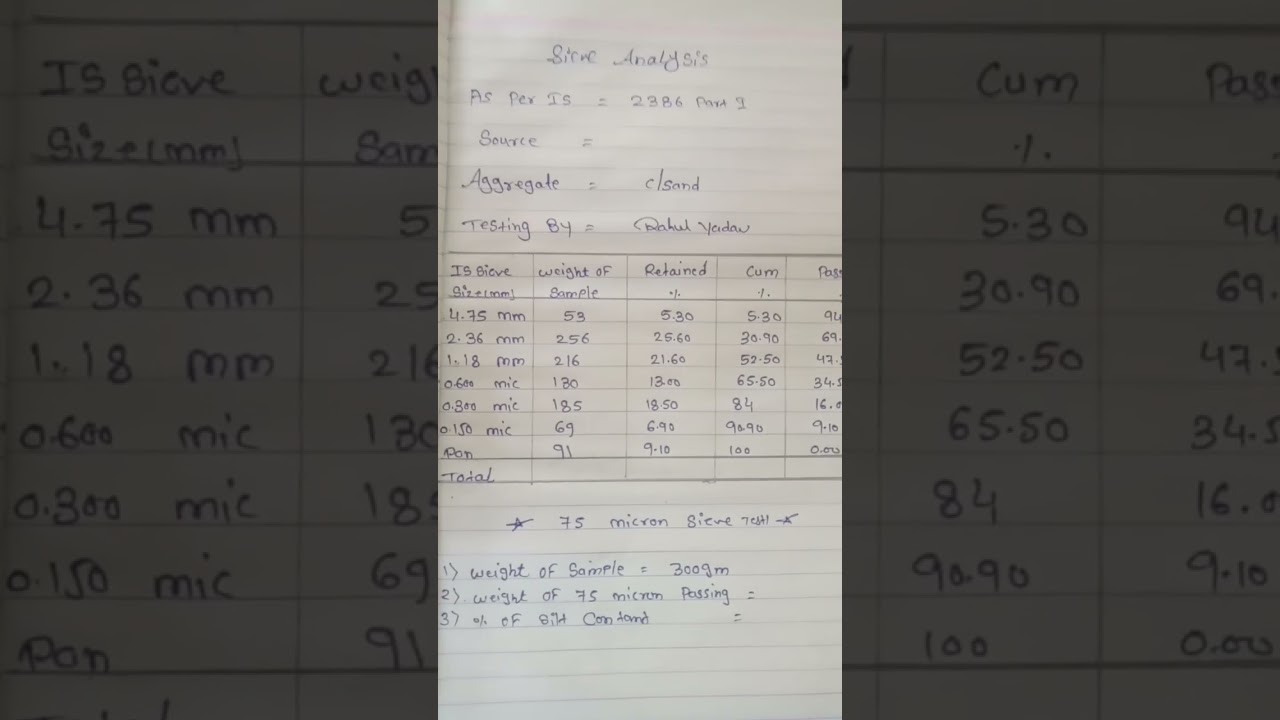 Sieve Analysis
As Per IS = 2386 Part I
Source =
Aggregate = c/sand
Testing By = Rahul Yadav
IS Sieve weight of Retained Cum Pass
Size(mm) Sample % %
4.75 mm 53 5.30 5.30 94
2.36 mm 256 25.60 30.90 69.
1.18 mm 216 21.60 52.50 47.5
0.600 mic 130 13.00 65.50 34.5
0.300 mic 185 18.50 84 16.0
0.150 mic 69 6.90 90.90 9.10
Pan 91 9.10 100 0.00
Total
★ 75 micron Sieve Test ★
1) weight of Sample = 300gm
2) weight of 75 micron Passing =
3) % of Silt Contant =